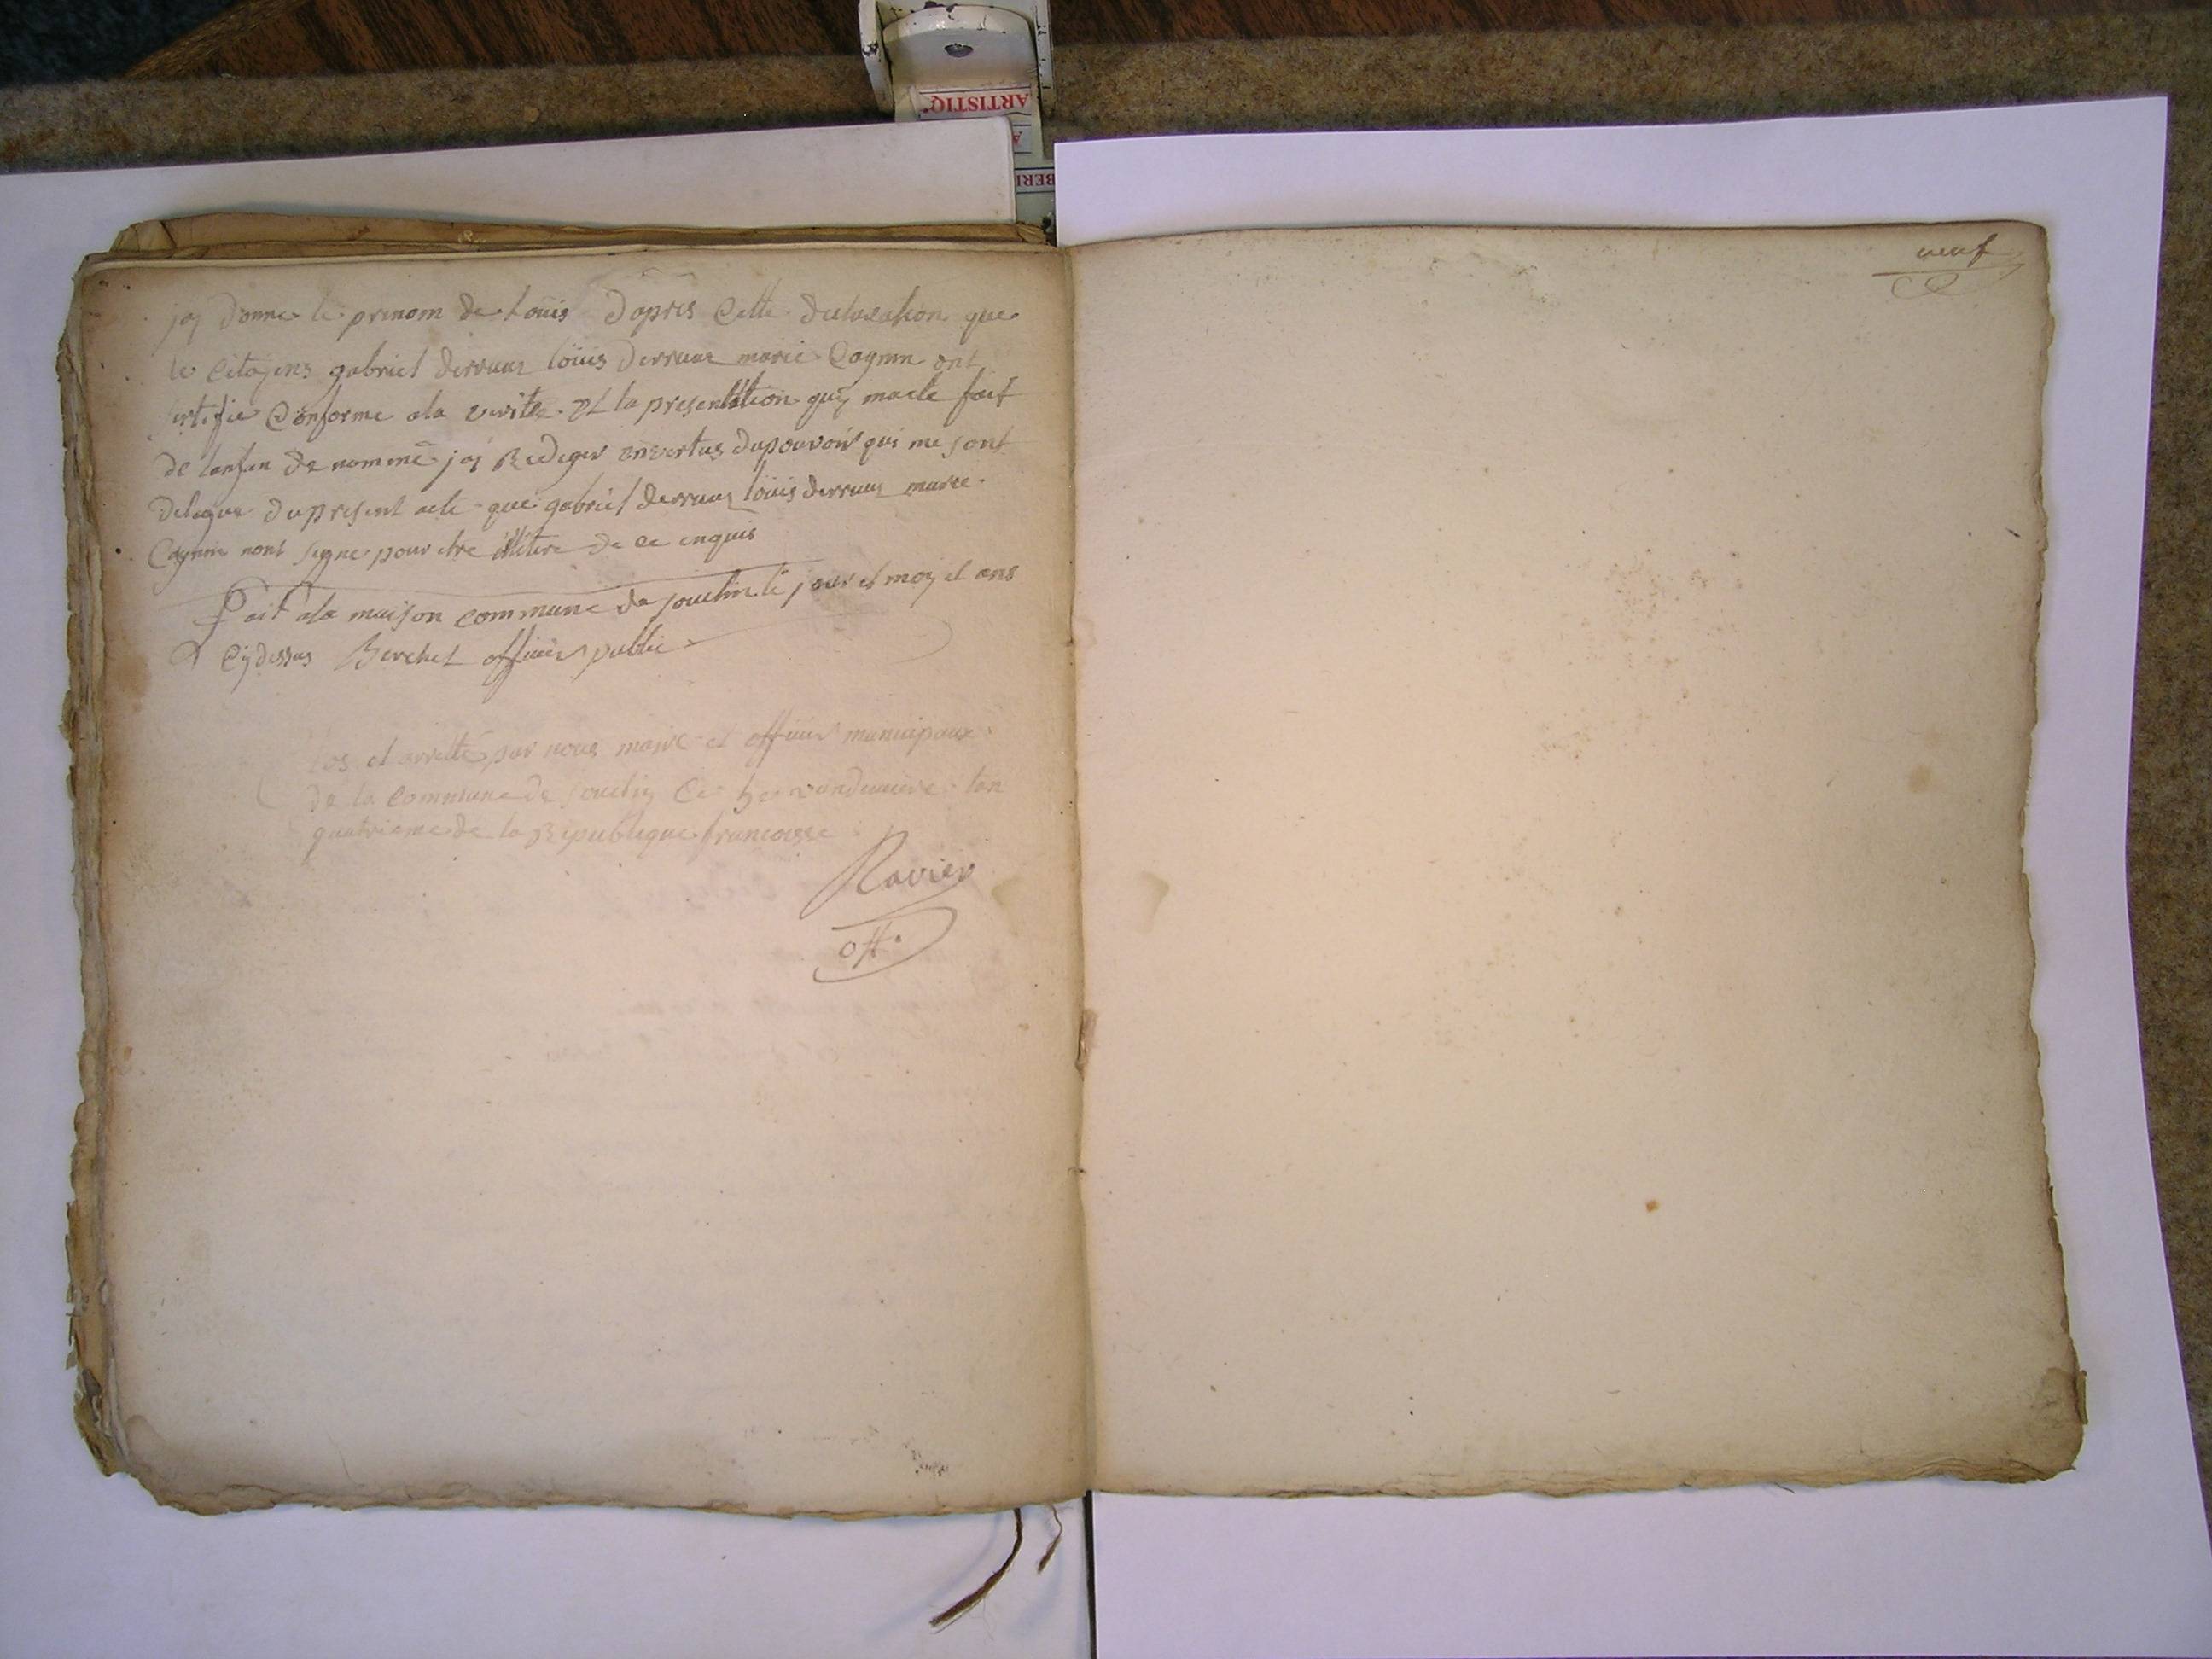 jaj donne le prenom de Louis Dapres Cette declaration que
le Citoyens gabriel derruaz loüis derruaz marie Caynin ont
sertifie Conforme ala verite Et la presentation quij male fait
de lanfan denommé jaj Rediger envertus dupouvoir qui me sont
delegue dupresent acte que gabriel derruaz loüis derruaz marie
Caynin nont signe pour etre illitere de ce enquis
Fait ala maison commune de jouclin le jour et moy et ans
Cydessus Berchet officier public
Clos et arretté par nous maire et officier municipaux
de la commune de jouclin Ce vandemiere lan
quatrieme de la Republique francoisse
Ravier
off.
neuf
ARTISTIQ